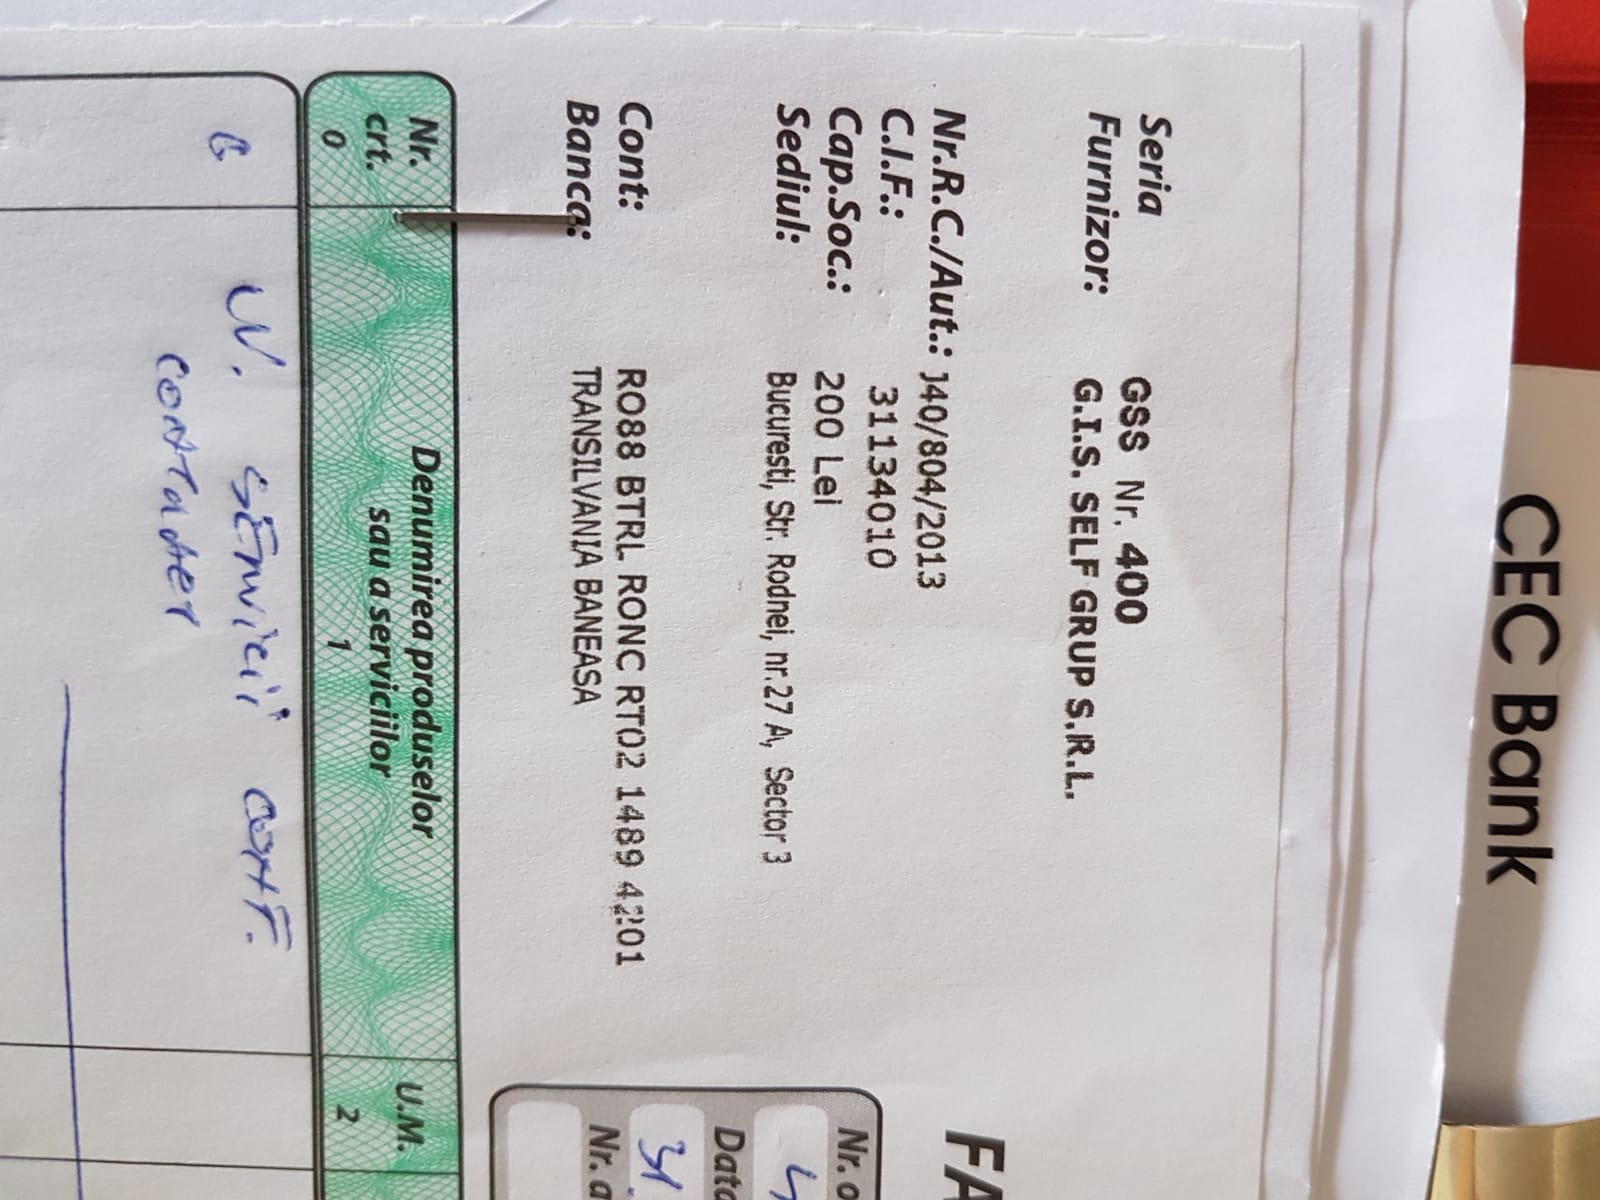 CEC Bank
Seria GSS Nr. 400
Furnizor: G.I.S. SELF GRUP S.R.L.
Nr.R.C./Aut.: J40/804/2013
C.I.F.: 31134010
Cap.Soc.: 200 Lei
Sediul: Bucuresti, Str. Rodnei, nr.27 A, Sector 3
Cont: RO88 BTRL RONC RT02 1489 4201
Banca: TRANSILVANIA BANEASA
FA
Nr. o
Data
31.
Nr. a
Nr. crt. Denumirea produselor sau a serviciilor U.M.
0 1 2
V. SERVICII CONF.
CONTRACT